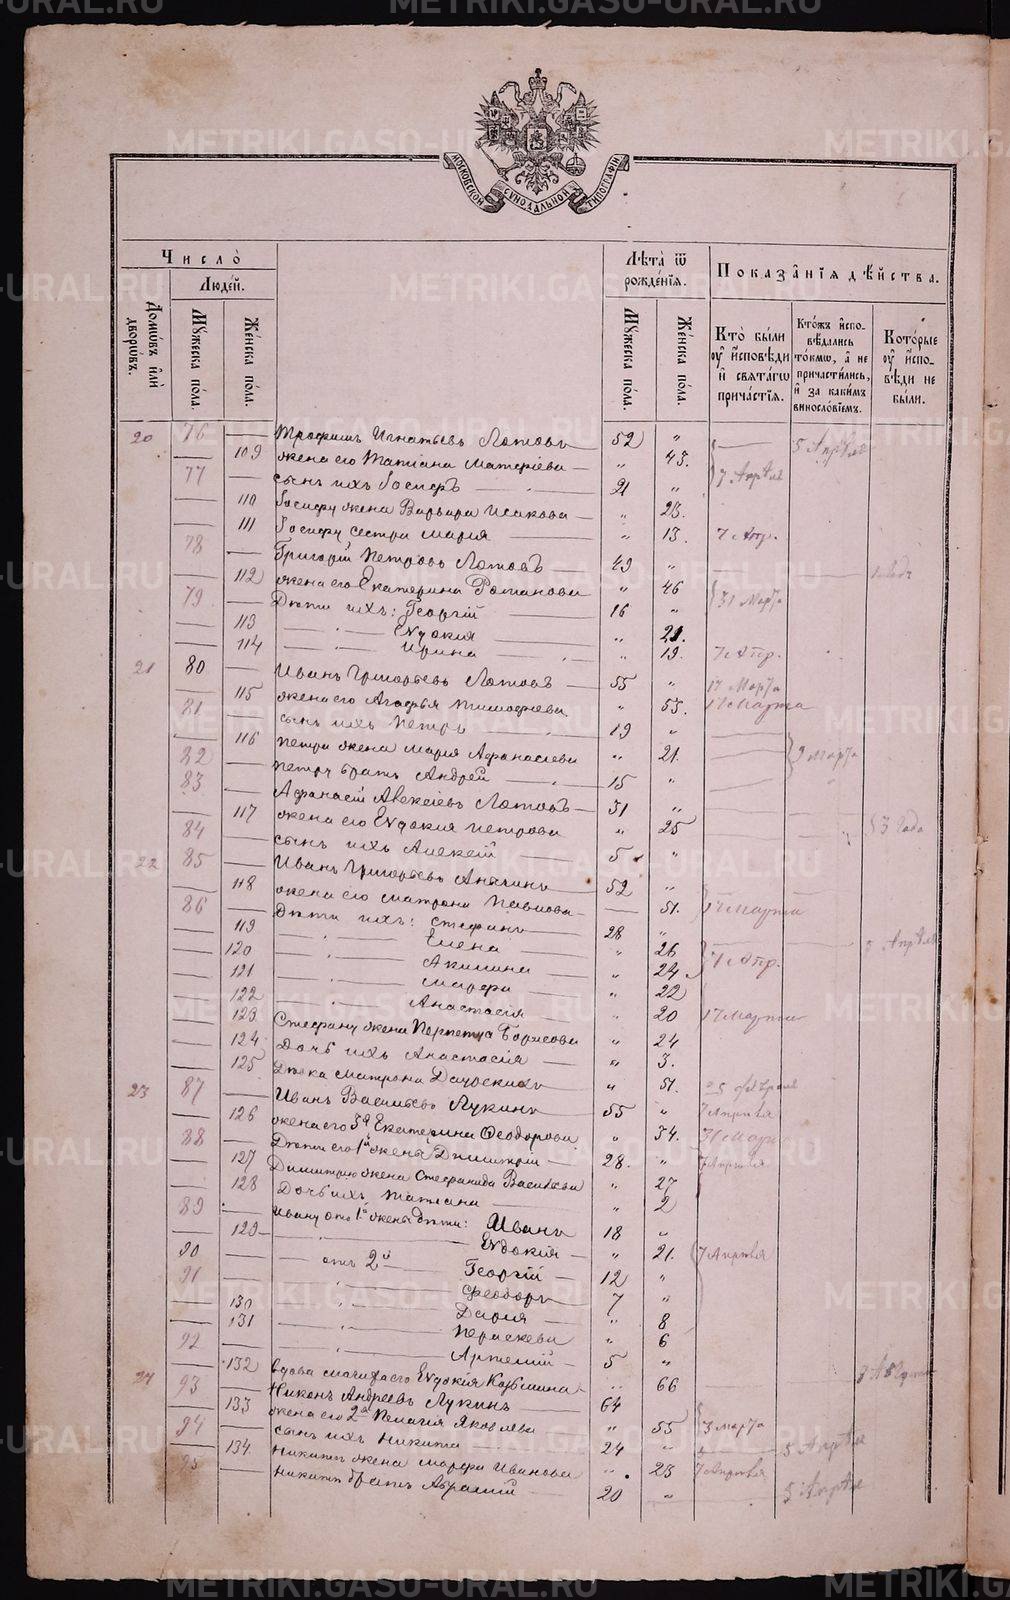 МОСКОВСКОЙ СѴНОДАЛЬНОЙ ТИПОГРАФІИ
Число̀
Людей.
Домѡвъ или дворѡвъ.
Мꙋжеска пола.
Женска пола.
Лѣта ѿ рожденїѧ.
Мꙋжеска пола.
Женска пола.
Показанїѧ дѣйства.
Кто были ᲂу исповѣди и свѧтагѡ причастїѧ.
Ктожъ исповѣдались токмѡ, а не причастились, и за какимъ винословїемъ.
Которые ᲂу исповѣди не были.
20 76 Трофимъ Игнатьевъ Лотовъ 52 " 5 Апрѣля
109 жена его Татіана Матфіева " 43. 7 Апрѣля
77 сынъ ихъ Іосифъ 21 "
110 Іосифу жена Варвара Исакова " 23.
111 Іосифу сестра Марія " 13. 7 Апр.
78 Григорій Петровъ Лотовъ 49 "
112 жена его Екатерина Романова " 46 31 Марта
79 Дѣти ихъ: Георгій 16 "
113 Евдокія " 21.
114 Ирина " 19. 7 Апр.
21 80 Иванъ Григорьевъ Лотовъ 55 " 17 Марта
115 жена его Агафья Тимофіева " 53. 17 Марта
81 сынъ ихъ Петръ 19 "
116 Петра жена Марія Афанасіева " 21. 3 Марта
82 Петру братъ Андрей 15 "
83 Афанасій Алексіевъ Лотовъ 51 "
117 жена его Евдокия Петрова " 25 3 года
84 сынъ ихъ Алексій 5 "
22 85 Иванъ Григорьевъ 52 "
118 жена его Матрона Павлова 51. 17 Марта
86 Дѣти ихъ: Стефанъ 28 " Апрѣля
119 Елена " 26
120 Акилина " 24 7 Апр.
121 Марфа " 22
122 Анастасія " 20 17 Марта
123 Стефану жена Перпетуа Борисова " 24
124 Дочь ихъ Анастасія " 3.
125 Дѣвка Матрона " 51.
23 87 Иванъ Васильевъ Лукинъ 55 " 7 Апрѣля
126 жена его 3я Екатерина Феодорова " 54. 31 Мар
88 Дѣти его 1й жены Димитрій 28. " 7 Апрѣля
127 Димитрію жена Стефанида Васильева " 27
128 Дочь ихъ Татіана " 2
89 Ивану отъ 1й жены дѣти: Иванъ 18 "
129 Евдокія " 21. 7 Апрѣля
90 отъ 2й Георгій 12 "
91 Феодоръ 7 "
130 Дарія " 8
131 Параскева " 6
92 Артемій 5 "
132 вдова мачиха его Евдокія Козьмина " 66
24 93 Никонъ Андреевъ Лукинъ 64
133 жена его 2я Пелагія Яковлева " 55 3 Марта
94 сынъ ихъ Никита 24 " 5 Апрѣля
134 Никиты жена Марфа Иванова " 23 7 Апрѣля
95 Никиты братъ Авраамій 20 " 5 Апрѣля
METRIKI.GASO-URAL.RU